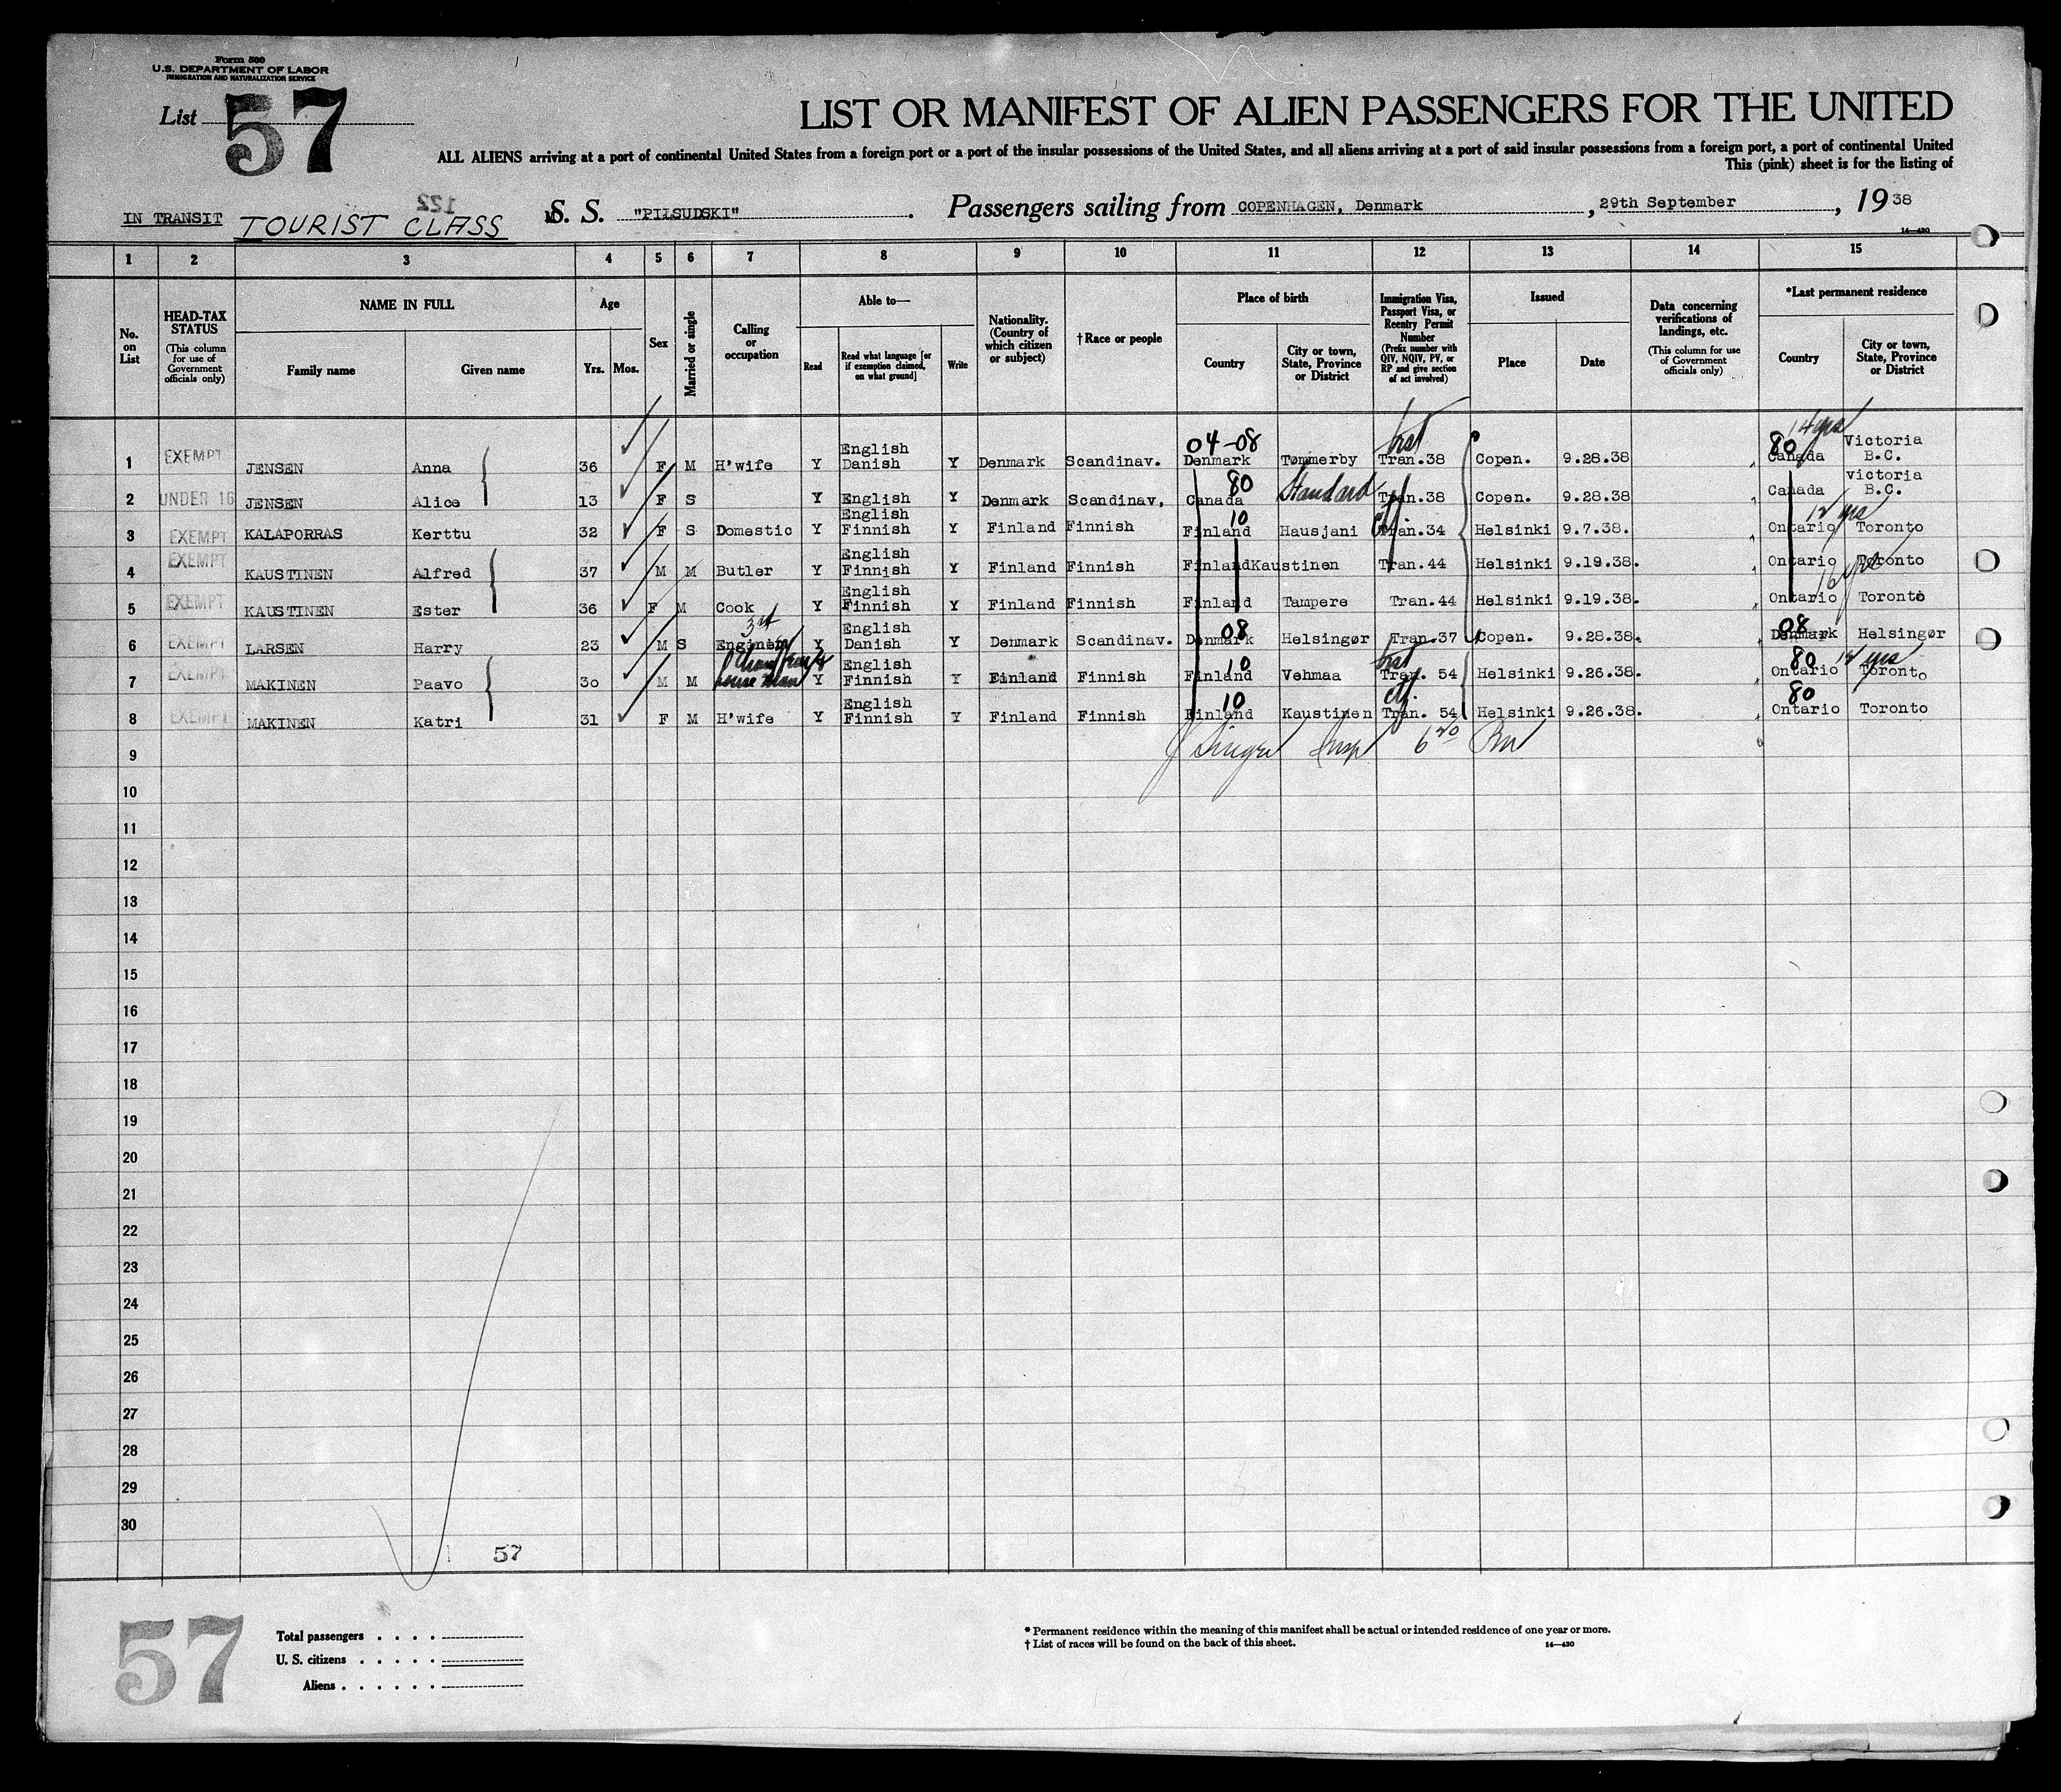 Form 500
U.S. DEPARTMENT OF LABOR
IMMIGRATION AND NATURALIZATION SERVICE
List 57
LIST OR MANIFEST OF ALIEN PASSENGERS FOR THE UNITED
ALL ALIENS arriving at a port of continental United States from a foreign port or a port of the insular possessions of the United States, and all aliens arriving at a port of said insular possessions from a foreign port, a port of continental United
This (pink) sheet is for the listing of
122
IN TRANSIT TOURIST CLASS S. S. "PIŁSUDSKI" . Passengers sailing from COPENHAGEN, Denmark , 29th September , 19 38
14—430
1 2 3 4 5 6 7 8 9 10 11 12 13 14 15
No. on List
HEAD-TAX STATUS (This column for use of Government officials only)
NAME IN FULL
Family name Given name
Age
Yrs. Mos.
Sex
Married or single
Calling or occupation
Able to—
Read
Read what language [or if exemption claimed, on what ground]
Write
Nationality. (Country of which citizen or subject)
†Race or people
Place of birth
Country
City or town, State, Province or District
Immigration Visa, Passport Visa, or Reentry Permit Number (Prefix number with QIV, NQIV, PV, or RP and give section of act involved)
Issued
Place Date
Data concerning verifications of landings, etc. (This column for use of Government officials only)
*Last permanent residence
Country
City or town, State, Province or District
04-08 80 14 yrs
1 EXEMPT JENSEN Anna 36 F M H'wife Y English Danish Y Denmark Scandinav. Denmark Tømmerby Tran.38 Copen. 9.28.38 Canada Victoria B.C.
80 Standard
2 UNDER 16 JENSEN Alice 13 F S Y English Y Denmark Scandinav, Canada Tran.38 Copen. 9.28.38 Canada Victoria B.C.
10 12 yrs
3 EXEMPT KALAPORRAS Kerttu 32 F S Domestic Y English Finnish Y Finland Finnish Finland Hausjani Tran.34 Helsinki 9.7.38. Ontario Toronto
4 EXEMPT KAUSTINEN Alfred 37 M M Butler Y English Finnish Y Finland Finnish Finland Kaustinen Tran.44 Helsinki 9.19.38. Ontario Toronto
16 yrs
5 EXEMPT KAUSTINEN Ester 36 F M Cook Y English Finnish Y Finland Finnish Finland Tampere Tran.44 Helsinki 9.19.38. Ontario Toronto
3rd 08 08
6 EXEMPT LARSEN Harry 23 M S Engineer Y English Danish Y Denmark Scandinav. Denmark Helsingør Tran.37 Copen. 9.28.38. Denmark Helsingør
10 80 14 yrs
7 EXEMPT MAKINEN Paavo 30 M M house man Y English Finnish Y Finland Finnish Finland Vehmaa Tran. 54 Helsinki 9.26.38. Ontario Toronto
10 80
8 EXEMPT MAKINEN Katri 31 F M H'wife Y English Finnish Y Finland Finnish Finland Kaustinen Tran. 54 Helsinki 9.26.38. Ontario Toronto
9 Singer Insp
10
11
12
13
14
15
16
17
18
19
20
21
22
23
24
25
26
27
28
29
30
57
57
Total passengers
U. S. citizens
Aliens
* Permanent residence within the meaning of this manifest shall be actual or intended residence of one year or more.
† List of races will be found on the back of this sheet. 14—430